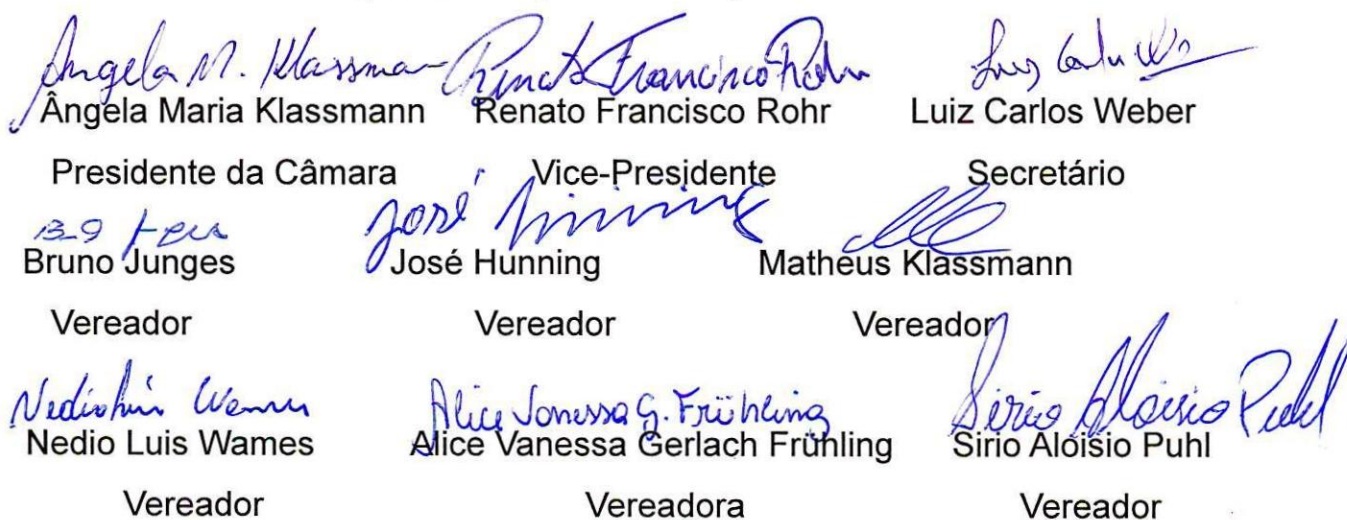 Ângela M. Klassman Renato Francisco Rohr Luiz Carlos
Ângela Maria Klassmann Renato Francisco Rohr Luiz Carlos Weber
Presidente da Câmara Vice-Presidente Secretário
José Hunning
Bruno Junges José Hunning Matheus Klassmann
Vereador Vereador Vereador
Alice Vanessa G. Frühling Sirio Aloisio Puhl
Nedio Luis Wames Alice Vanessa Gerlach Frühling Sirio Aloisio Puhl
Vereador Vereadora Vereador